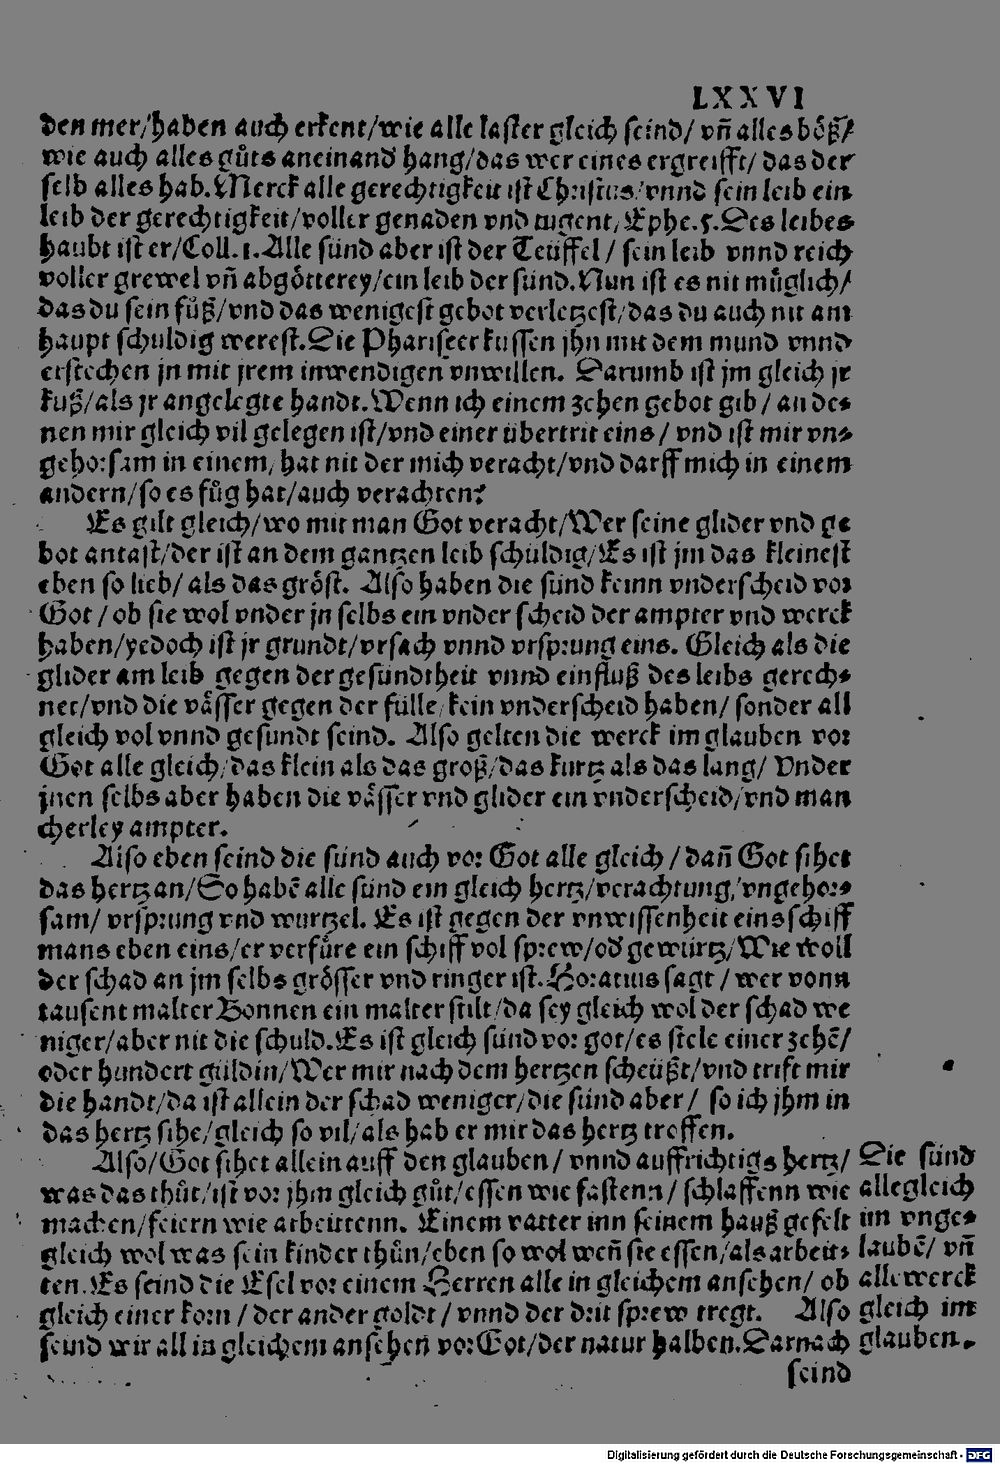 LXXVI
den mer/haben auch erkent/wie alle laster gleich seind/ vñ alles böß/
wie auch alles gůts aneinand hang/das wer eines ergreifft/ das der
selb alles hab. Merck alle gerechtigkeit ist Christus/vnnd sein leib ein
leib der gerechtigkeit/voller genaden vnd tugent/Ephe.5.Des leibes
haubt ist er/Coll.1.Alle sünd aber ist der Teüffel / sein leib vnnd reich
voller grewel vñ abgötterey/ein leib der sünd.Nun ist es nit müglich/
das du sein fůß/vnd das wenigest gebot verletzest/das du auch nit am
haupt schuldig werest.Die Phariseer kussen jhn mit dem mund vnnd
erstechen jn mit jrem inwendigen vnwillen. Darumb ist jm gleich jr
kuß/als jr angelegte handt.Wenn ich einem zehen gebot gib / an de⸗
nen mir gleich vil gelegen ist/vnd einer übertrit eins / vnd ist mir vn⸗
gehorsam in einem/ hat nit der mich veracht/vnd darff mich in einem
andern/so es fůg hat/auch verachten?
Es gilt gleich/wo mit man Got veracht/Wer seine glider vnd ge
bot antast/der ist an dem gantzen leib schuldig/Es ist jm das kleinest
eben so lieb/ als das gröst. Also haben die sünd keinn vnderscheid vor
Got / ob sie wol vnder jn selbs ein vnder scheid der ampter vnd werck
haben/yedoch ist jr grundt/vrsach vnnd vrsprung eins. Gleich als die
glider am leib gegen der gesundtheit vnnd einfluß des leibs gerech⸗
net/vnd die vässer gegen der fülle/ kein vnderscheid haben/ sonder all
gleich vol vnnd gesundt seind. Also gelten die werck im glauben vor
Got alle gleich/das klein als das groß/das kurtz als das lang/ Vnder
jnen selbs aber haben die vässer vnd glider ein vnderscheid/vnd man
cherley ampter.
Also eben seind die sünd auch vor Got alle gleich / dañ Got sihet
das hertz an/So habẽ alle sünd ein gleich hertz/verachtung/vngehor⸗
sam/ vrsprung vnd wurtzel. Es ist gegen der vnwissenheit eins schiff
mans eben eins/er verfüre ein schiff vol sprew/od gewürtz/Wie woll
der schad an jm selbs grösser vnd ringer ist.Horatius sagt / wer vonn
tausent malter Bonnen ein malter stilt/da sey gleich wol der schad we
niger/aber nit die schuld.Es ist gleich sünd vor got/es stele einer zehẽ/
oder hundert güldin/Wer mir nach dem hertzen scheüßt/vnd trift mir
die handt/da ist allein der schad weniger/die sünd aber / so ich jhm in
das hertz sihe/gleich so vil/als hab er mir das hertz troffen.
Also/Got sihet allein auff den glauben/ vnnd auffrichtigs hertz/
was das thůt/ist vor jhm gleich gůt/essen wie fastenn/ schlaffenn wie
machen/feiern wie arbeittenn. Einem vatter inn seinem hauß gefelt
gleich wol was sein kinder thůn/eben so wol weñ sie essen/als arbeit⸗
ten.Es seind die Esel vor einem Herren alle in gleichem ansehen/ ob
gleich einer korn / der ander goldt / vnnd der drit sprew tregt. Also
seind wir all in gleichem ansehen vor Got/der natur halben.Darnach
seind
Die sünd
alle gleich
im vnge⸗
laubẽ/ vñ
alle werck
gleich im
glauben.
Digitalisierung gefördert durch die Deutsche Forschungsgemeinschaft - DFG